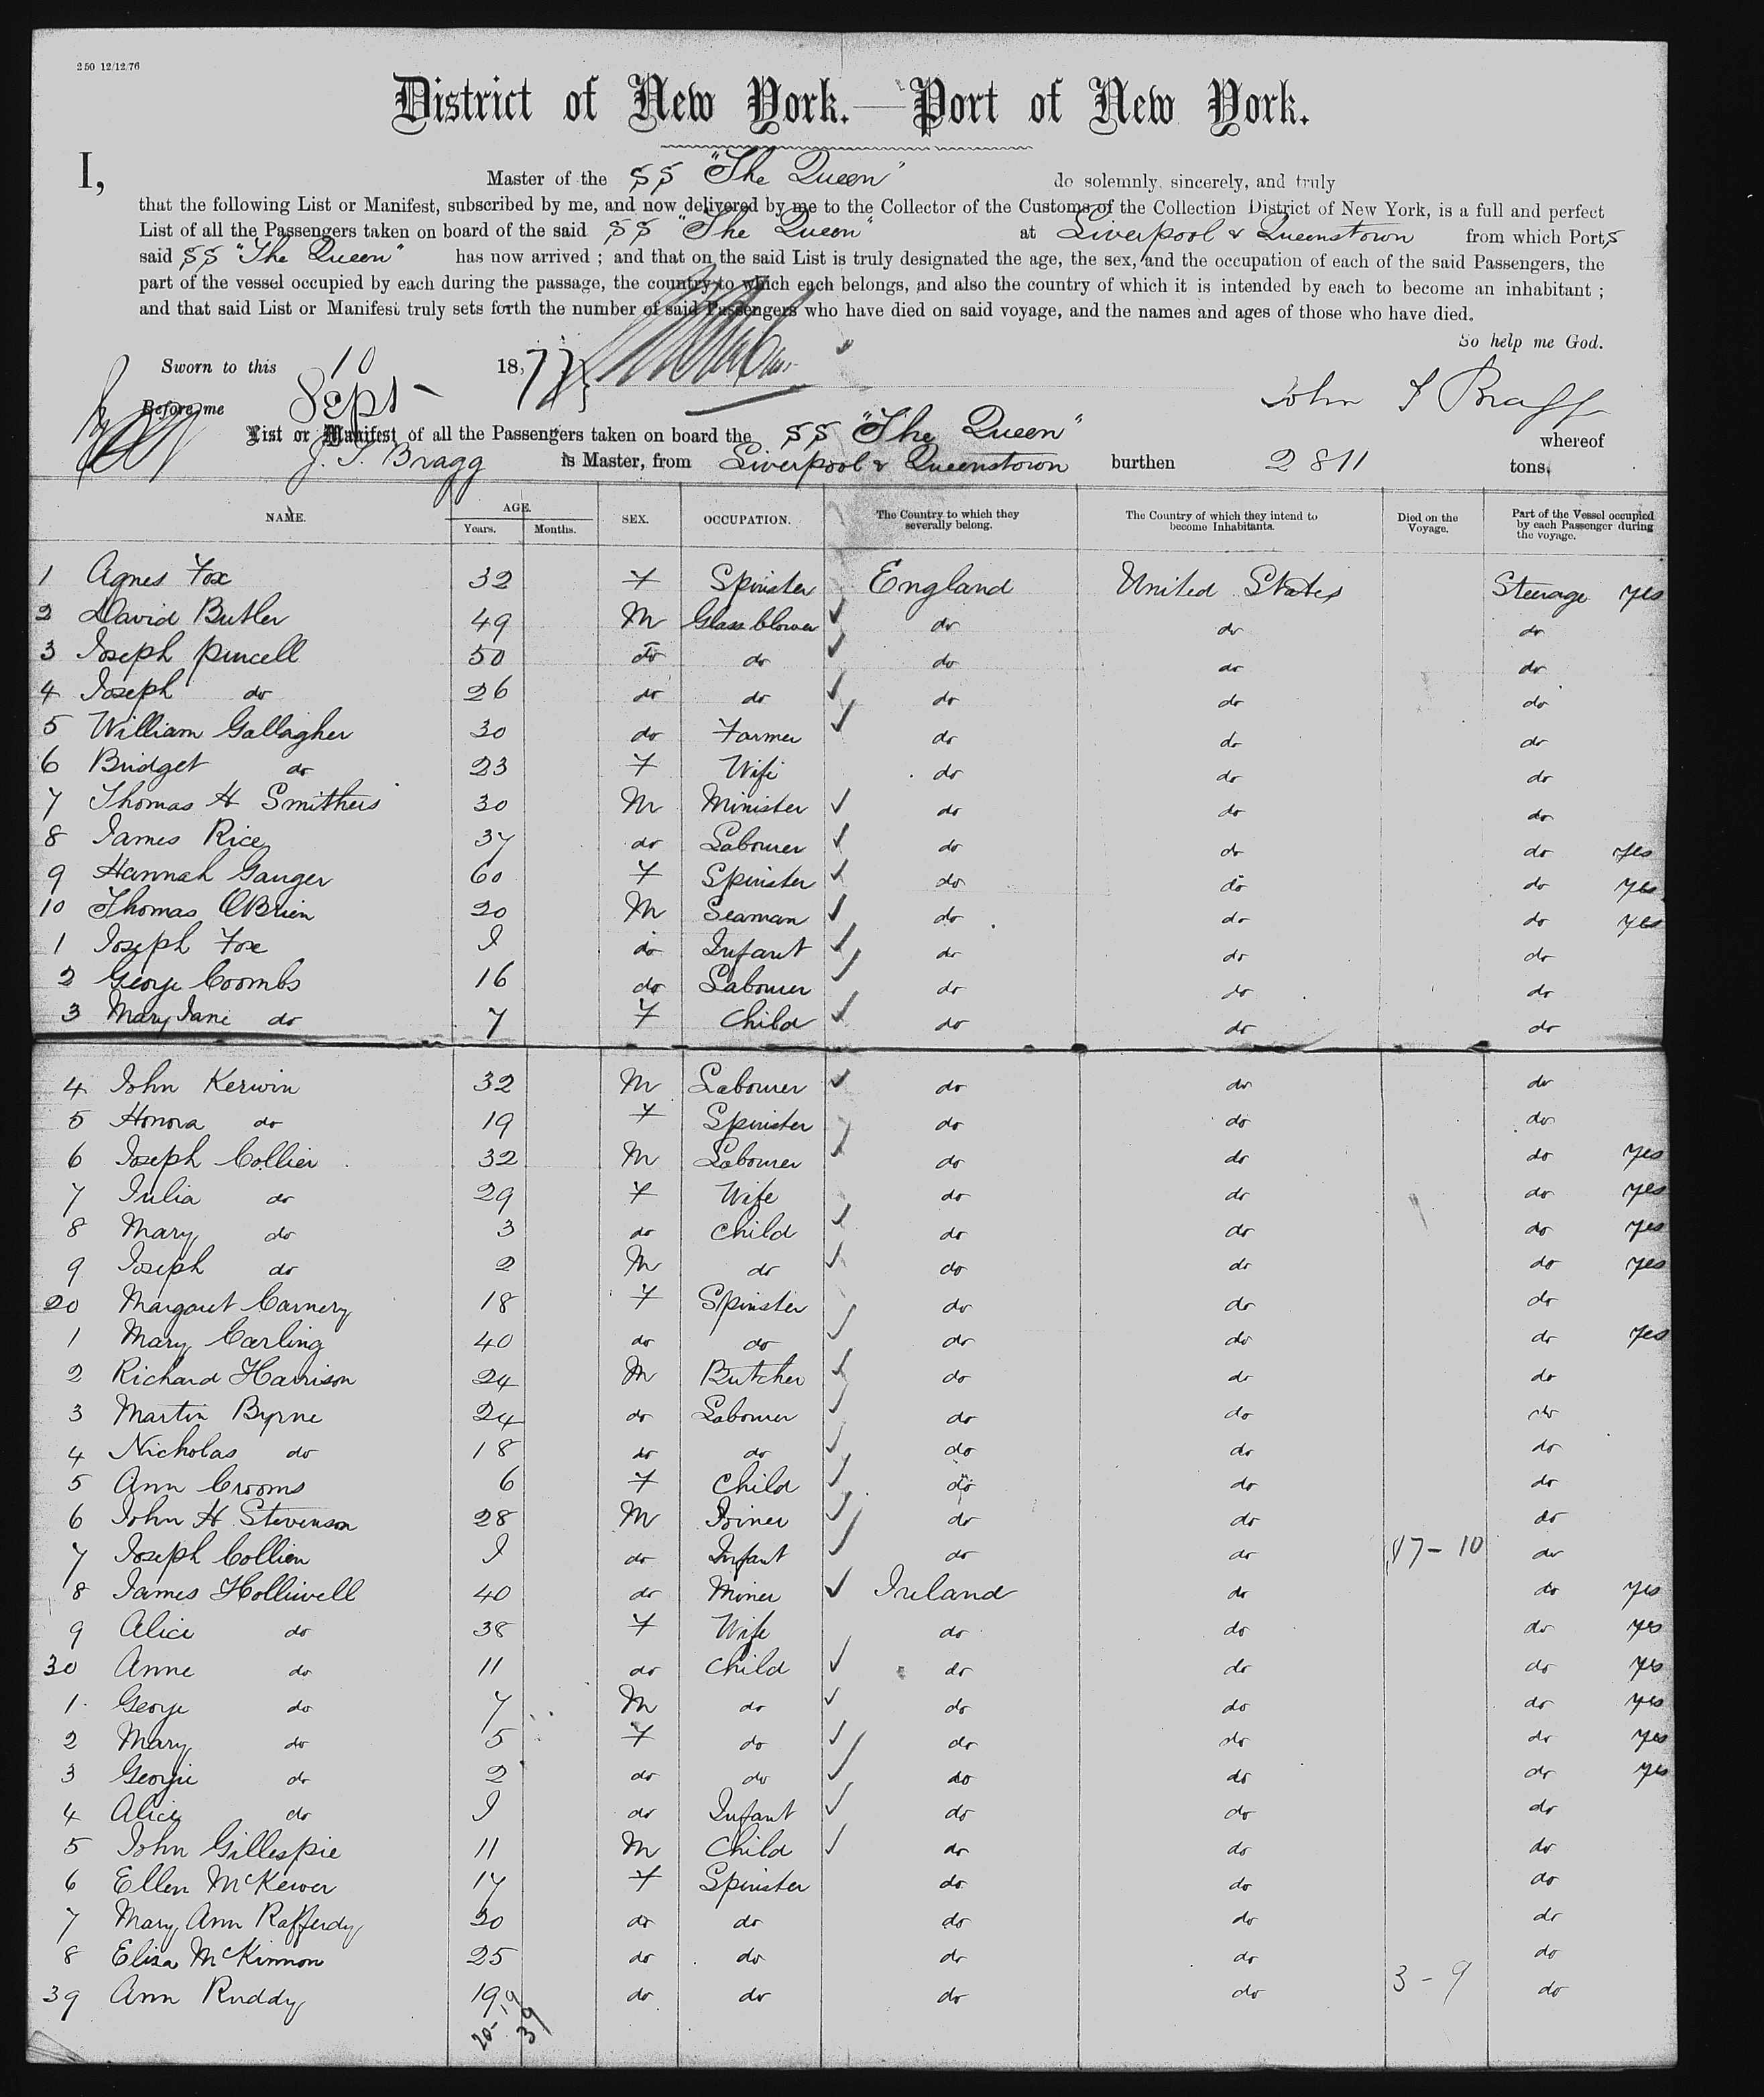 250 12/12/76
District of New York.—Port of New York.
I, Master of the SS "The Queen" do solemnly, sincerely, and truly
that the following List or Manifest, subscribed by me, and now delivered by me to the Collector of the Customs of the Collection District of New York, is a full and perfect
List of all the Passengers taken on board of the said SS "The Queen" at Liverpool & Queenstown from which Ports
said SS "The Queen" has now arrived ; and that on the said List is truly designated the age, the sex, and the occupation of each of the said Passengers, the
part of the vessel occupied by each during the passage, the country to which each belongs, and also the country of which it is intended by each to become an inhabitant ;
and that said List or Manifest truly sets forth the number of said Passengers who have died on said voyage, and the names and ages of those who have died.
So help me God.
Sworn to this 10 Sept 1877
Before me John S Bragg
List or Manifest of all the Passengers taken on board the SS "The Queen" whereof
J. S. Bragg is Master, from Liverpool & Queenstown burthen 2811 tons.
NAME. AGE. Years. Months. SEX. OCCUPATION. The Country to which they severally belong. The Country of which they intend to become Inhabitants. Died on the Voyage. Part of the Vessel occupied by each Passenger during the voyage.
1 Agnes Fox 32 F Spinster England United States Steerage yes
2 David Butler 49 M Glass blower do do do
3 Joseph Purcell 50 do do do do do
4 Joseph do 26 do do do do do
5 William Gallagher 30 do Farmer do do do
6 Bridget do 23 F Wife do do do
7 Thomas H Smithers 30 M Minister do do do
8 James Rice 37 do Labourer do do do yes
9 Hannah Gauger 60 F Spinster do do do yes
10 Thomas OBrien 20 M Seaman do do do yes
1 Joseph Fox I do Infant do do do
2 George Coombs 16 do Labourer do do do
3 Mary Jane do 7 F Child do do do
4 John Kerwin 32 M Labourer do do do
5 Honora do 19 F Spinster do do do
6 Joseph Collier 32 M Labourer do do do yes
7 Julia do 29 F Wife do do do yes
8 Mary do 3 do Child do do do yes
9 Joseph do 2 M do do do do yes
20 Margaret Carnery 18 F Spinster do do do
1 Mary Carling 40 do do do do do yes
2 Richard Harrison 24 M Butcher do do do
3 Martin Byrne 24 do Labourer do do do
4 Nicholas do 18 do do do do do
5 Ann Crooms 6 F Child do do do
6 John H Stevenson 28 M Joiner do do do
7 Joseph Collien I do Infant do do 17-10 do
8 James Holliwell 40 do Miner Ireland do do yes
9 Alice do 38 F Wife do do do yes
30 Anne do 11 do Child do do do yes
1 George do 7 M do do do do yes
2 Mary do 5 F do do do do yes
3 Georgie do 2 do do do do do yes
4 Alice do I do Infant do do do
5 John Gillespie 11 M Child do do do
6 Ellen McKewer 17 F Spinster do do do
7 Mary Ann Rafferdy 30 do do do do do
8 Eliza McKinnon 25 do do do do do
39 Ann Ruddy 19 do do do do 3-9 do
20-19
39